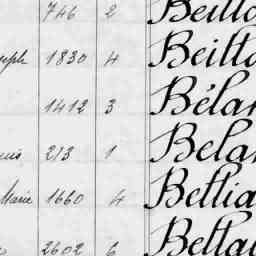 746 2 Beillo
seph 1830 4 Beillo
1412 3 Bélan
uis 213 1 Belan
Marie 1660 4 Bellia
2602 6 Bella